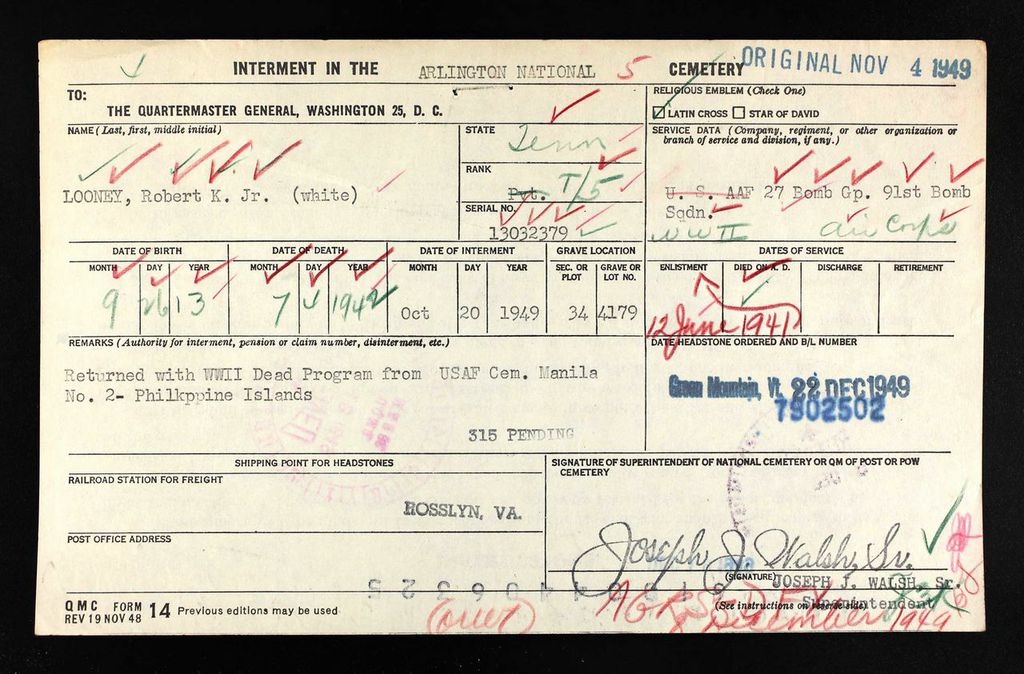 INTERMENT IN THE ARLINGTON NATIONAL 5 CEMETERY
ORIGINAL NOV 4 1949
TO:
THE QUARTERMASTER GENERAL, WASHINGTON 25, D. C.
RELIGIOUS EMBLEM (Check One)
LATIN CROSS STAR OF DAVID
NAME (Last, first, middle initial)
LOONEY, Robert K. Jr. (white)
STATE
Tenn
RANK
Pvt. T/5
SERIAL NO.
13032379
SERVICE DATA (Company, regiment, or other organization or
branch of service and division, if any.)
U. S. AAF 27 Bomb Gp. 91st Bomb
Sqdn.
WW II Air Corps
DATE OF BIRTH DATE OF DEATH DATE OF INTERMENT GRAVE LOCATION
MONTH DAY YEAR MONTH DAY YEAR MONTH DAY YEAR SEC. OR PLOT GRAVE OR LOT NO.
9 26 13 7 4 1942 Oct 20 1949 34 4179
DATES OF SERVICE
ENLISTMENT DIED ON A. D. DISCHARGE RETIREMENT
12 June 1941
REMARKS (Authority for interment, pension or claim number, disinterment, etc.)
Returned with WWII Dead Program from USAF Cem. Manila
No. 2- Philkppine Islands
315 PENDING
DATE HEADSTONE ORDERED AND B/L NUMBER
Green Mountain, Vt. 22 DEC 1949
7902502
SHIPPING POINT FOR HEADSTONES
RAILROAD STATION FOR FREIGHT
ROSSLYN, VA.
POST OFFICE ADDRESS
SIGNATURE OF SUPERINTENDENT OF NATIONAL CEMETERY OR QM OF POST OR POW
CEMETERY
Joseph J. Walsh, Sr.
(SIGNATURE) JOSEPH J. WALSH, Sr.
(See instructions on reverse side) Superintendent
December 1949
(over)
QMC FORM 14 Previous editions may be used
REV 19 NOV 48